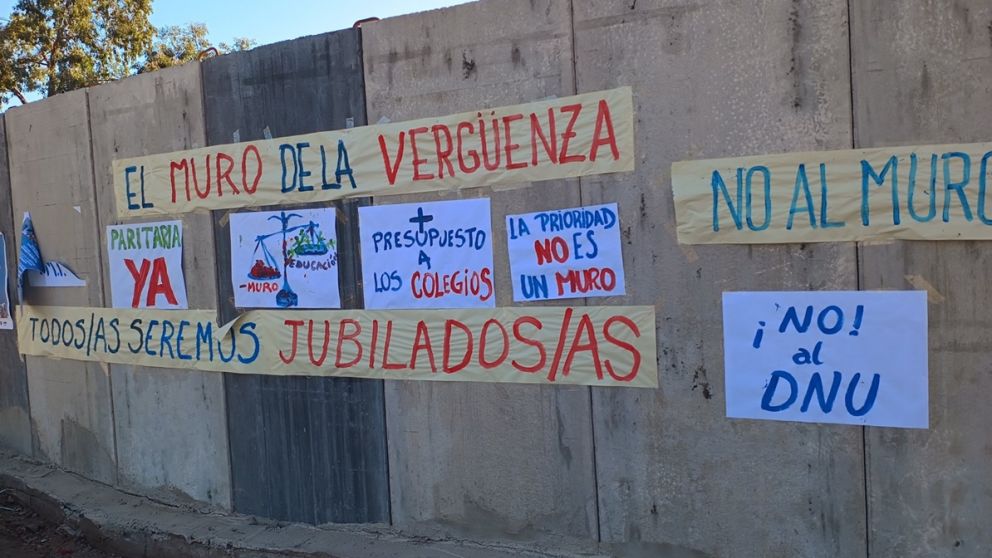 EL MURO DE LA VERGÜENZA
NO AL MURO
PARITARIA
YA
-MURO
+EDUCACIÓN
+
PRESUPUESTO
A
LOS COLEGIOS
LA PRIORIDAD
NO ES
UN MURO
TODOS/AS SEREMOS JUBILADOS/AS
¡NO!
al
DNU